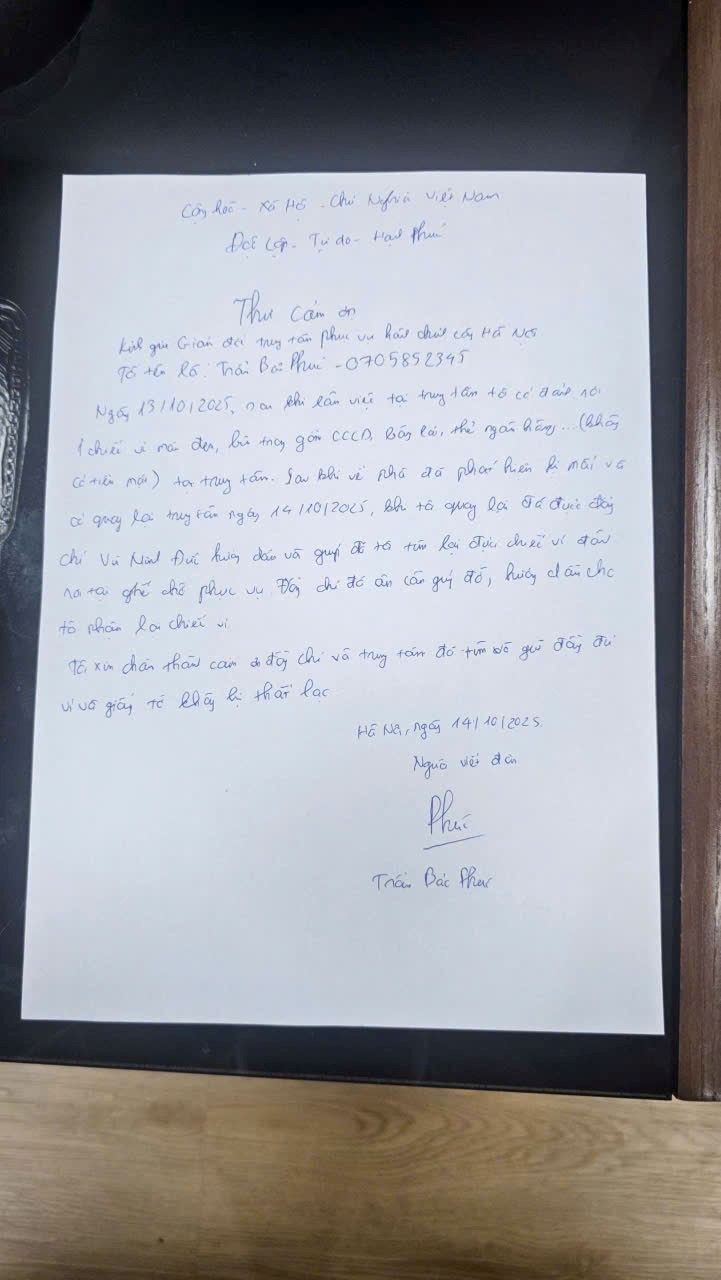 Cộng hòa - Xã Hội - Chủ Nghĩa Việt Nam
Độc Lập - Tự do - Hạnh Phúc
Thư Cảm ơn
Kính gửi Giám đốc trung tâm phục vụ hành chính công Hà Nội
Tôi tên là: Trần Bác Phúc - 0705852345
Ngày 13/10/2025, sau khi làm việc tại trung tâm tôi có đánh rơi
1 chiếc ví màu đen, bên trong gồm CCCD, Bằng lái, thẻ ngân hàng...(không
có tiền mặt) tại trung tâm. Sau khi về nhà đã phát hiện bị mất và
có quay lại trung tâm ngày 14/10/2025, khi tôi quay lại đã được đồng
chí Vũ Minh Đức hướng dẫn và giúp đỡ tôi tìm lại được chiếc ví đánh
rơi tại ghế chờ phục vụ. Đồng chí đó ân cần giúp đỡ, hướng dẫn cho
tôi nhận lại chiếc ví
Tôi xin chân thành cảm ơn đồng chí và trung tâm đã tìm và giữ đầy đủ
ví và giấy tờ không bị thất lạc
Hà Nội, ngày 14/10/2025.
Người viết đơn
Phúc
Trần Bác Phúc